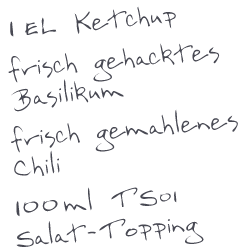 1 EL Ketchup
frisch gehacktes
Basilikum
frisch gemahlenes
Chili
100ml TSOI
Salat-Topping